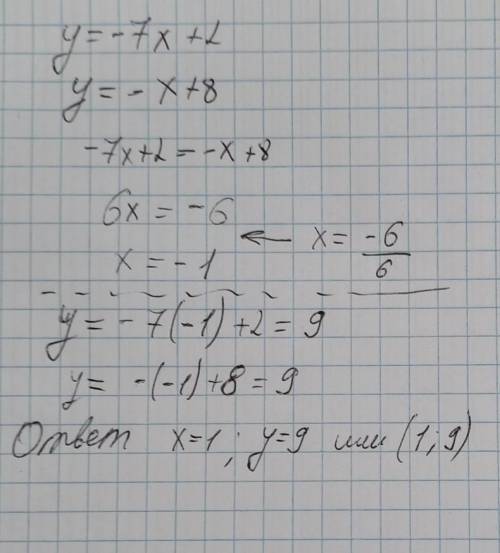 y = -7x + 2
y = - x + 8
-7x+2 = -x + 8
6x = -6
x = -1 ← x = -6/6
y = -7(-1) + 2 = 9
y = -(-1) + 8 = 9
Ответ x=1; y=9 или (1; 9)